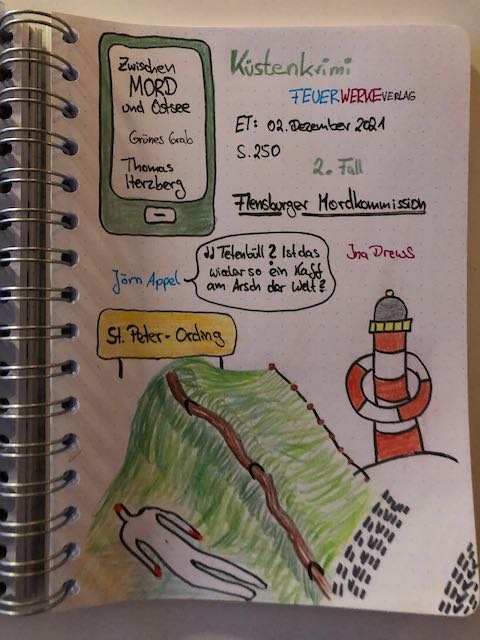 Zwischen
MORD
und Ostsee
Grünes Grab
Thomas
Herzberg
Küstenkrimi
FEUERWERKEVERLAG
ET: 02. Dezember 2021
S. 250
2. Fall
Flensburger Mordkommission
Jörn Appel
,, Tetenbüll? Ist das
wieder so ein Kaff
am Arsch der Welt?
Ina Drews
St. Peter-Ording